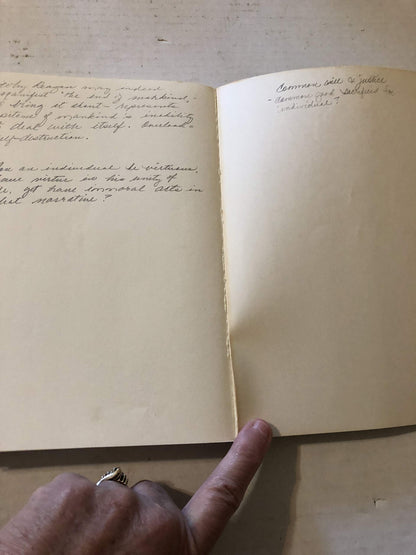 why Reagan may indeed
"The end of mankind,"
bring it about – represents
of mankind's inability
deal with itself.
self-destruction.
an individual be virtuous,
have virtue in his unity of
yet have immoral acts in
narrative?
Common will & justice
- Common good sacrificed for
individual?